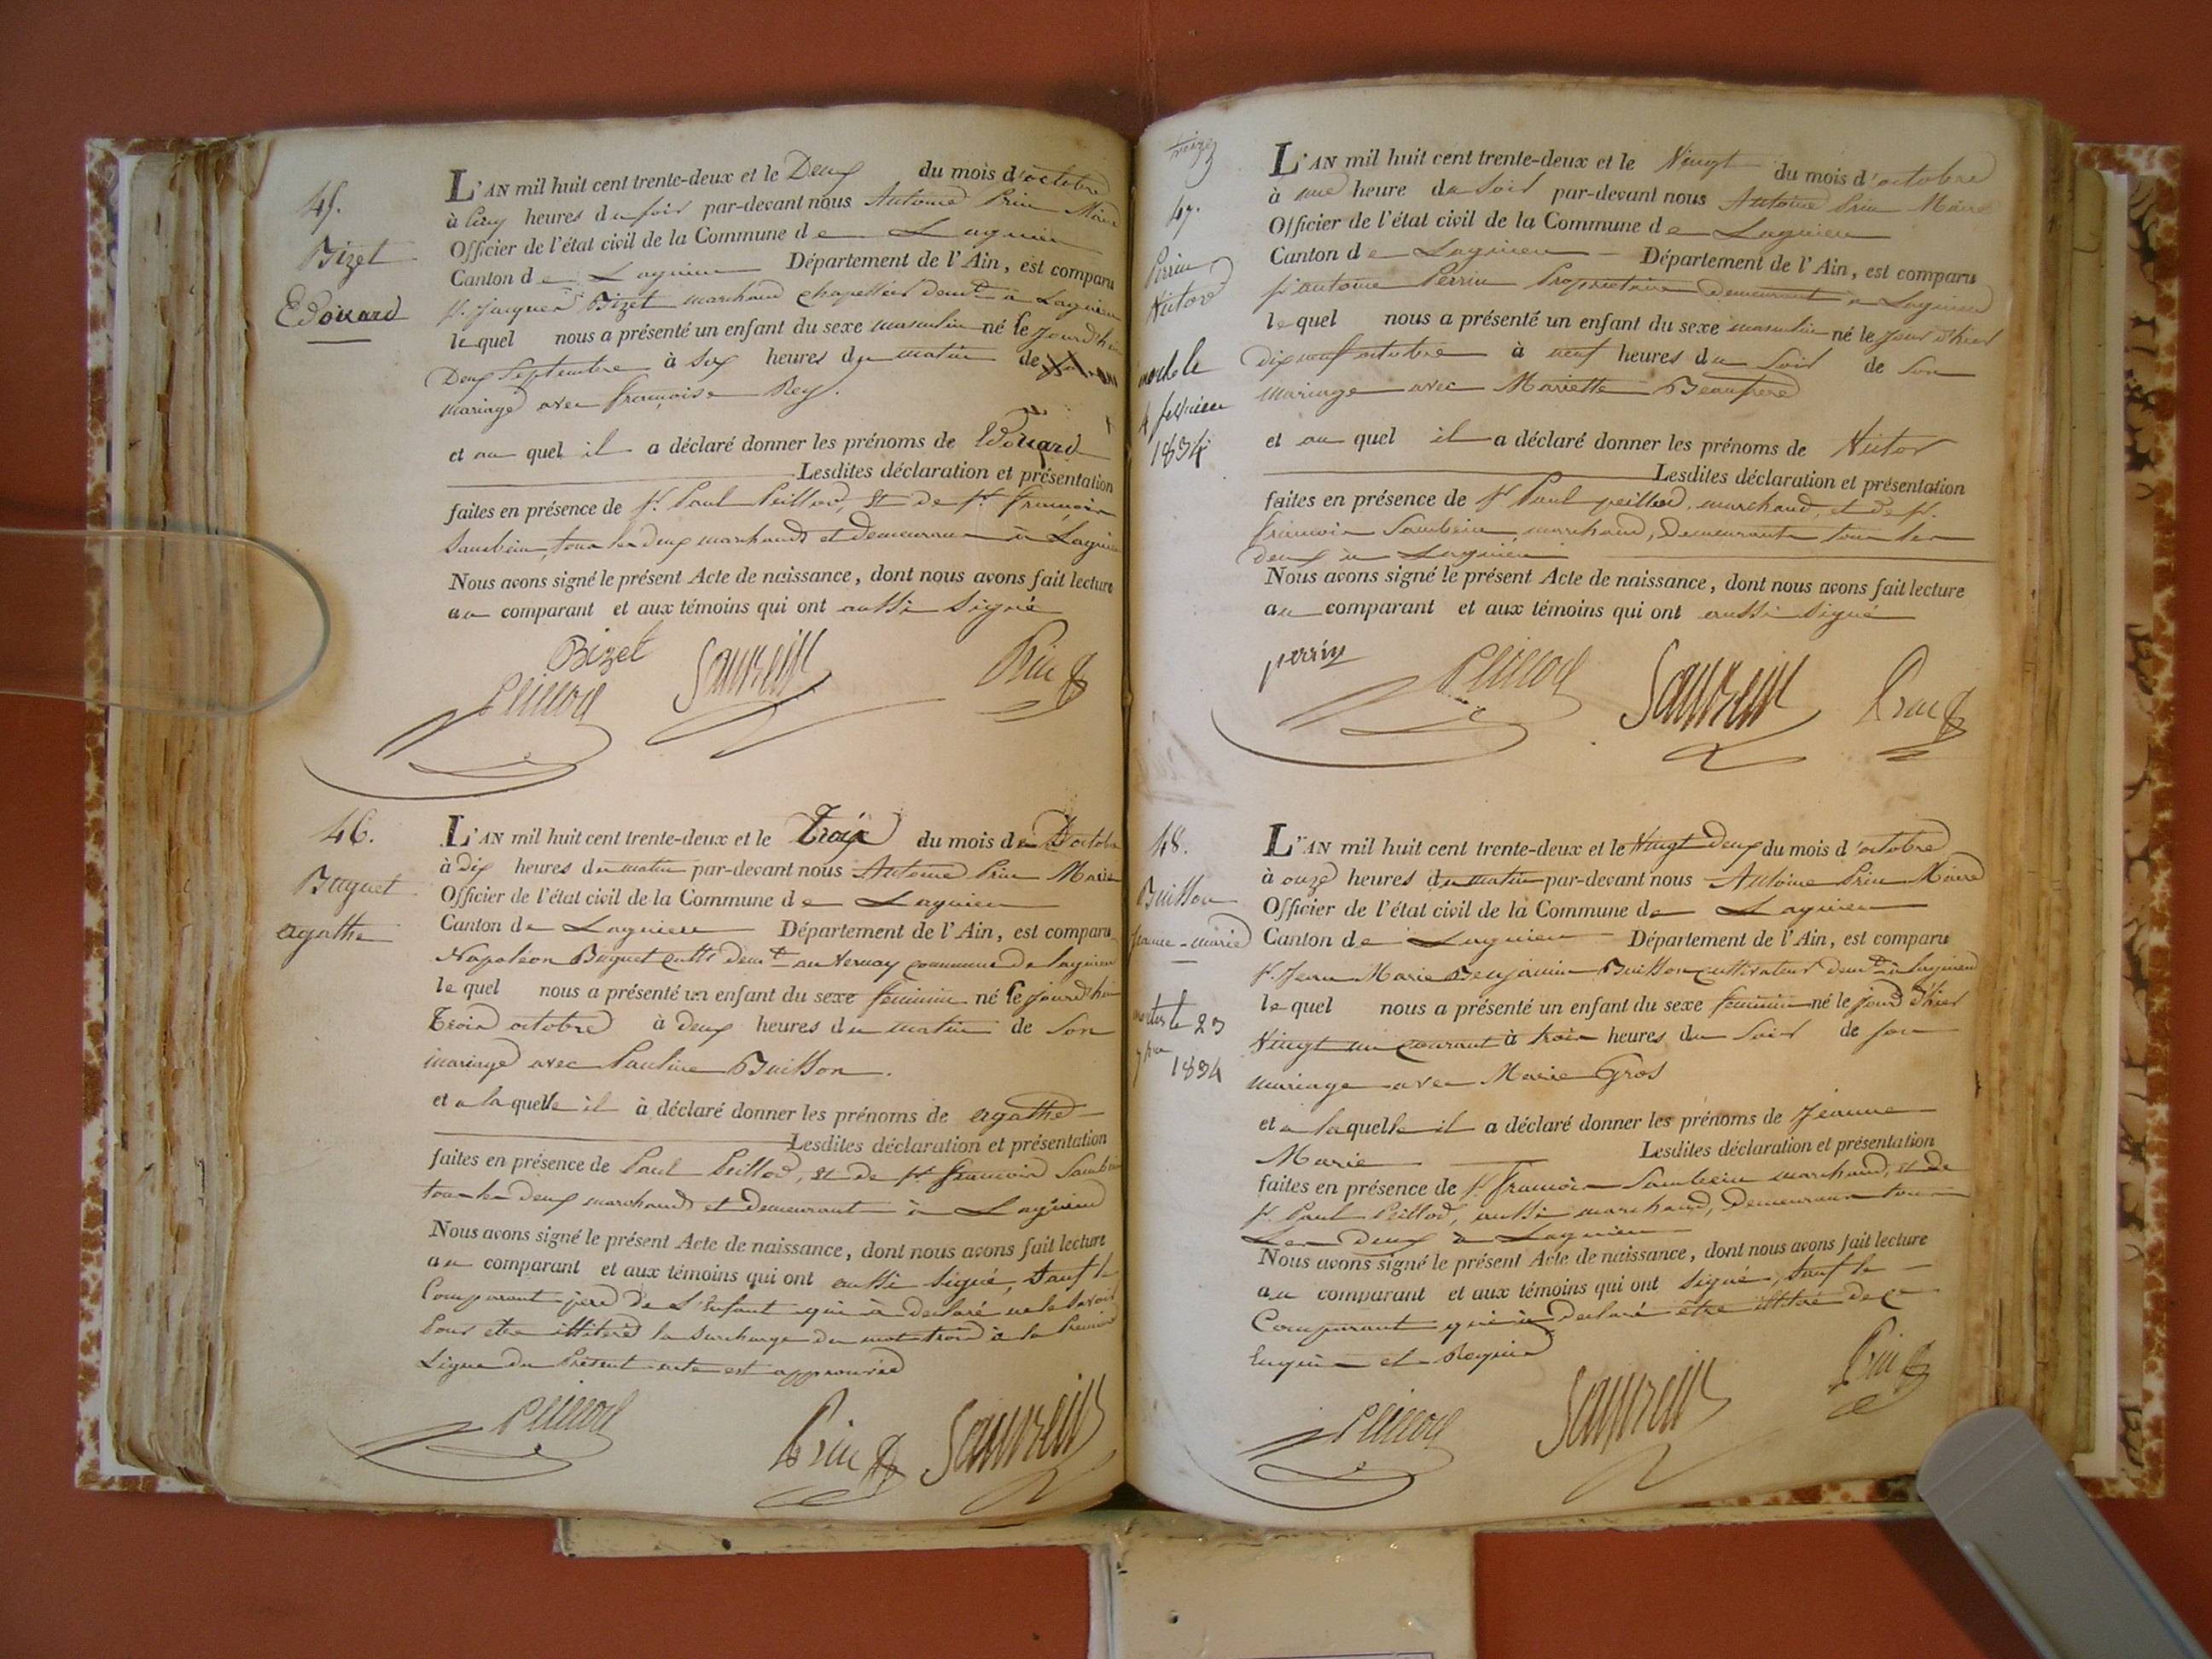 45.
Bizet
Edouard
L'AN mil huit cent trente-deux et le Deux du mois d'octobre
à cinq heures du soir par-devant nous Antoine Prin Maire
Officier de l'état civil de la Commune de Lagnieu
Canton de Lagnieu Département de l'Ain, est comparu
sr. Jacques Bizet marchand chapellier demt à Lagnieu
lequel nous a présenté un enfant du sexe masculin né le jourd'hui
Deux Septembre à six heures du matin de son
mariage avec françoise Rey.
et au quel il a déclaré donner les prénoms de Edouard
Lesdites déclaration et présentation
faites en présence de sr. Paul Peillod, et de sr. françois
Saubein, tous les deux marchands et demeurant à Lagnieu
Nous avons signé le présent Acte de naissance, dont nous avons fait lecture
au comparant et aux témoins qui ont aussi signé
Bizet
Peillod Saubein Prin
46.
Buguet
agathe
L'AN mil huit cent trente-deux et le Trois du mois de octobre
à dix heures du matin par-devant nous Antoine Prin Maire
Officier de l'état civil de la Commune de Lagnieu
Canton de Lagnieu Département de l'Ain, est comparu
Napoleon Buguet cultr demt au vernay commune de lagnieu
lequel nous a présenté un enfant du sexe feminin né le jourd'hui
Trois octobre à deux heures du matin de son
mariage avec Pauline Buisson.
et a laquelle il à déclaré donner les prénoms de agathe
Lesdites déclaration et présentation
faites en présence de Paul Peillod, et de sr françois Saubein
tous les deux marchands et demeurant à Lagnieu
Nous avons signé le présent Acte de naissance, dont nous avons fait lecture
au comparant et aux témoins qui ont aussi signé, sauf le
Comparant père de l'Enfant qui a declaré ne le savoir
Pour etre illitéré la surcharge du mot trois à la Premiere
Ligne du Présent acte est approuvée
Peillod Prin Saubein
treize
47.
Perrin
Victor
mort le
4 fevrier
1834
L'AN mil huit cent trente-deux et le Vingt du mois d'octobre
à une heure du soir par-devant nous Antoine Prin Maire
Officier de l'état civil de la Commune de Lagnieu
Canton de Lagnieu Département de l'Ain, est comparu
sr antoine Perrin Proprietaire demeurant à Lagnieu
lequel nous a présenté un enfant du sexe masculin né le jour d'hier
Dix neuf octobre à neuf heures du soir de son
mariage avec Mariette Beaufrere
et au quel il a déclaré donner les prénoms de Victor
Lesdites déclaration et présentation
faites en présence de sr Paul peillod, marchand, et de sr.
françois Saubein, marchand, Demeurants tous les
deux à Lagnieu
Nous avons signé le présent Acte de naissance, dont nous avons fait lecture
au comparant et aux témoins qui ont aussi signé
perrin Peillod Saubein Prin
48.
Buisson
jeanne-marie
morte le 23
1834
L'AN mil huit cent trente-deux et le Vingt deux du mois d'octobre
à onze heures du matin par-devant nous Antoine Prin Maire
Officier de l'état civil de la Commune de Lagnieu
Canton de Lagnieu Département de l'Ain, est comparu
sr. Jean Marie Benjamin Buisson cultivateur demt à lagnieu
lequel nous a présenté un enfant du sexe feminin né le jour d'hier
Vingt un courant à trois heures du soir de son
mariage avec Marie Gros
et a laquelle il a déclaré donner les prénoms de Jeanne
Marie Lesdites déclaration et présentation
faites en présence de sr. françois Saubein marchand, et de
sr. Paul Peillod, aussi marchand, Demeurans tous
Les Deux à Lagnieu
Nous avons signé le présent Acte de naissance, dont nous avons fait lecture
au comparant et aux témoins qui ont signé, sauf le
Comparant qui à déclaré être illitéré de ce
Enquis et Requis
Peillod Saubein Prin